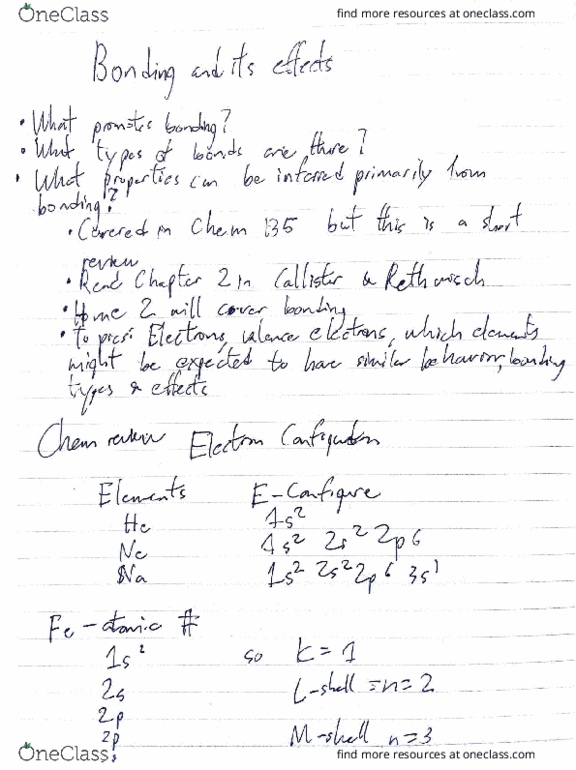 OneClass find more resources at oneclass.com
Bonding and its effects
• What promotes bonding?
• What types of bonds are there?
• What properties can be inferred primarily from
bonding?
• Covered in Chem 135 but this is a short
review
• Read Chapter 2 in Callister & Rethwisch
• Home 2 will cover bonding
• Electrons, valence electrons, which elements
might be expected to have similar behavior, bonding
types & effects
Chem review Electron Configuration
Elements E-Configure
He 1s²
Ne 1s² 2s² 2p6
Na 1s² 2s² 2p6 3s¹
Fe - atomic #
1s² so k = 1
2s L-shell = n = 2
2p
2p M-shell n = 3
OneClass find more resources at oneclass.com